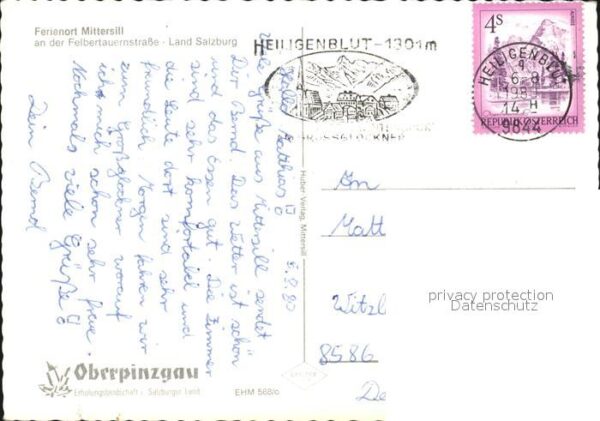 Ferienort Mittersill
an der Felbertauernstraße · Land Salzburg
HEILIGENBLUT - 1301m
GROSSGLOCKNER
4S
REPUBLIK ÖSTERREICH
HEILIGENBLUT
6.8.
198
14 H
9844
Hallo Matthias!
5.8.80
Viele Grüße aus Mittersill sendet
Dir Bernd. Das Wetter ist schön
und das Essen gut. Die Zimmer
sind sehr komfortabel und
die Leute dort sind sehr
freundlich. Morgen fahren wir
zum Großglockner worauf
ich mich schon sehr freue.
Nochmals viele Grüße!
Dein Bernd
Huber Verlag, Mittersill
An
Matt
Witzl
8586
De
privacy protection
Datenschutz
Oberpinzgau
Erholungslandschaft · Salzburger Land
EHM 568/c